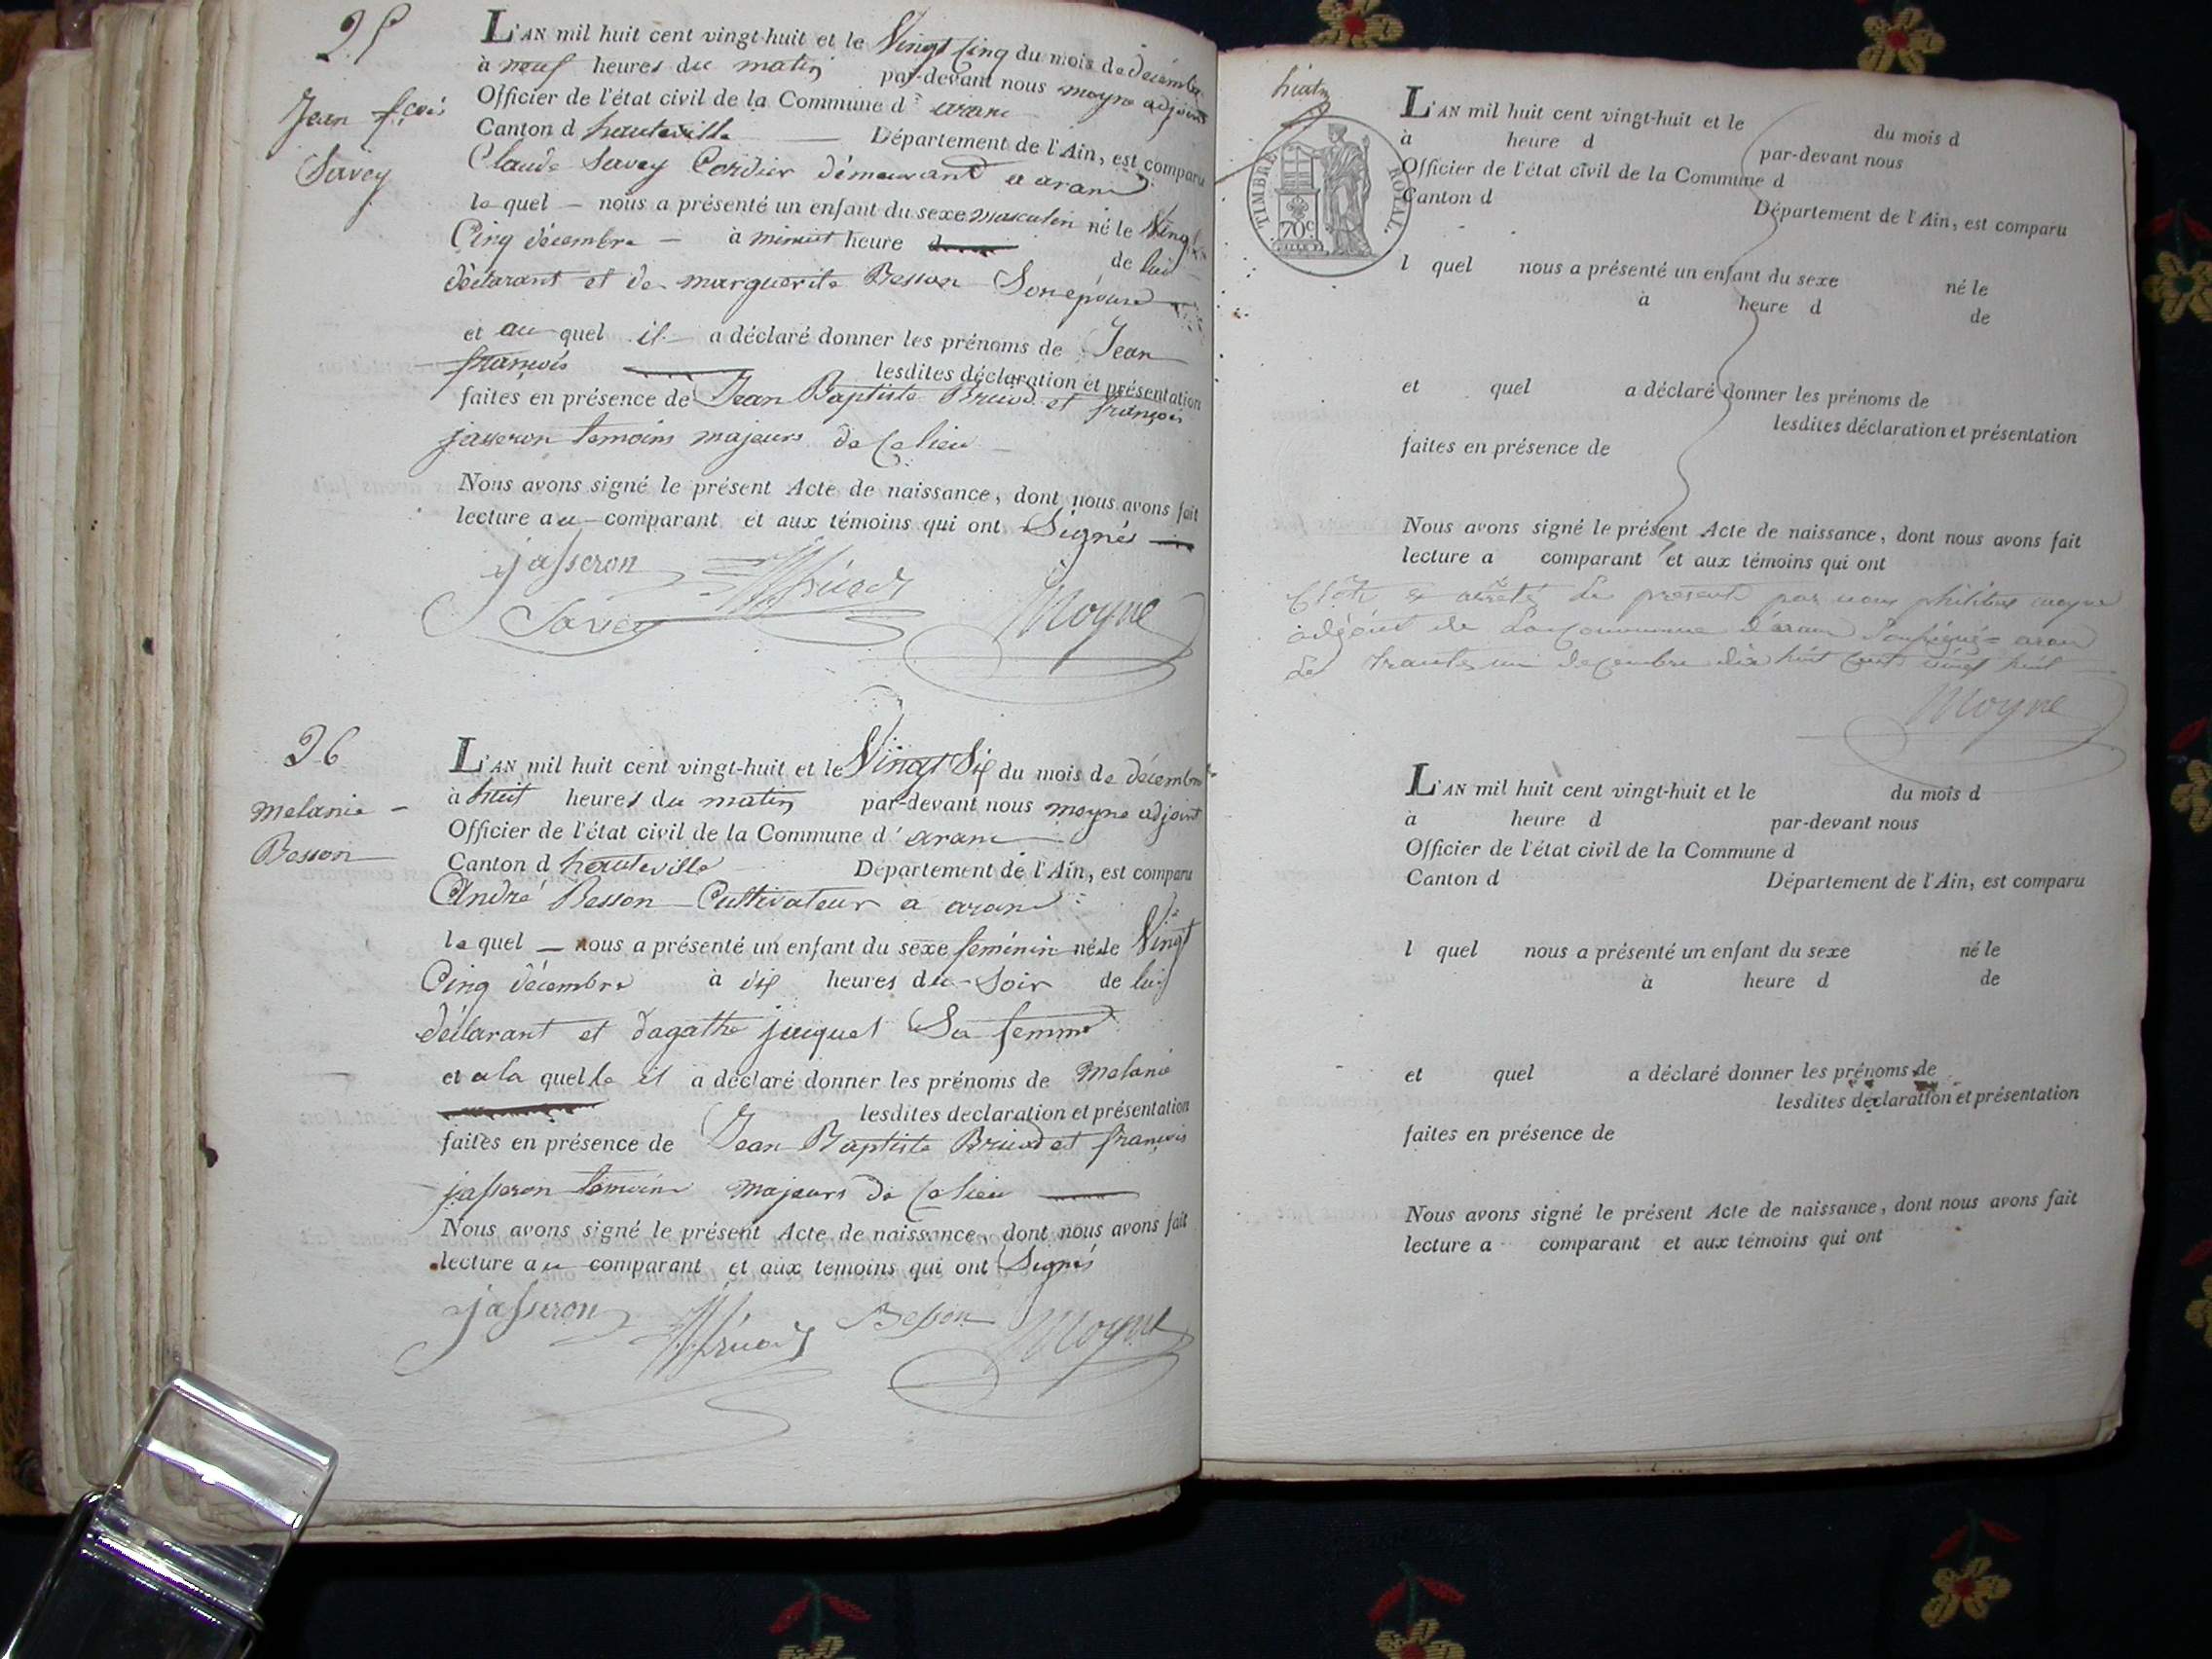 25
Jean fçois
Savey
L'AN mil huit cent vingt-huit et le Vingt Cinq du mois de décembre
à neuf heures du matin par-devant nous moyne adjoint
Officier de l'état civil de la Commune d' aranc
Canton d hauteville Département de l'Ain, est comparu
Claude Savey Cordier démeurant a aranc
le quel nous a présenté un enfant du sexe masculin né le Vingt
Cinq décembre à minuit heure de lui
déclarant et de marguerite Besson Son épouse
et au quel il a déclaré donner les prénoms de Jean
françois lesdites déclaration et présentation
faites en présence de Jean Baptiste Bruod et françois
jasseron temoins majeurs de Ce lieu
Nous avons signé le présent Acte de naissance, dont nous avons fait
lecture au comparant et aux témoins qui ont Signés
jasseron
Savey Moyne
26
melanie
Besson
L'AN mil huit cent vingt-huit et le Vingt Six du mois de décembre
à huit heures du matin par-devant nous moyne adjoint
Officier de l'état civil de la Commune d' aranc
Canton d hauteville Département de l'Ain, est comparu
André Besson Cultivateur a aranc
le quel nous a présenté un enfant du sexe féminin née le Vingt
Cinq décembre à dix heures du soir de lui
déclarant et dagathe juquet Sa femme
et a la quelle il a déclaré donner les prénoms de melanie
lesdites declaration et présentation
faites en présence de Jean Baptiste Bruod et françois
jasseron temoins majeurs de Ce lieu
Nous avons signé le présent Acte de naissance, dont nous avons fait
lecture au comparant et aux temoins qui ont Signés
jasseron Besson Moyne
huitm
TIMBRE ROYAL.
70c
L'AN mil huit cent vingt-huit et le du mois d
à heure d par-devant nous
Officier de l'état civil de la Commune d
Canton d Département de l'Ain, est comparu
l quel nous a présenté un enfant du sexe né le
à heure d de
et quel a déclaré donner les prénoms de
lesdites déclaration et présentation
faites en présence de
Nous avons signé le présent Acte de naissance, dont nous avons fait
lecture a comparant et aux témoins qui ont
Clôt et arreté le present par nous philibert moyne
adjoint de La Commune d'aranc Soussigné aranc
Le trante un decembre dix huit cent vingt huit
Moyne
L'AN mil huit cent vingt-huit et le du mois d
à heure d par-devant nous
Officier de l'état civil de la Commune d
Canton d Département de l'Ain, est comparu
l quel nous a présenté un enfant du sexe né le
à heure d de
et quel a déclaré donner les prénoms de
lesdites declaration et présentation
faites en présence de
Nous avons signé le présent Acte de naissance, dont nous avons fait
lecture a comparant et aux témoins qui ont